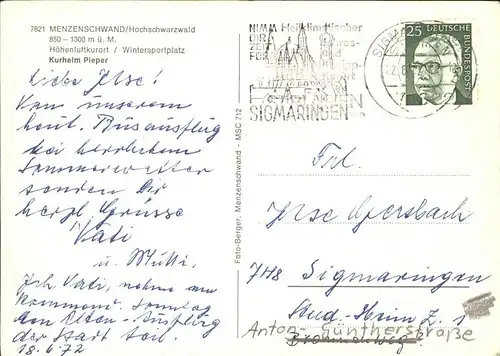 7821 MENZENSCHWAND/Hochschwarzwald
850-1300 m ü. M.
Höhenluftkurort / Wintersportplatz
Kurheim Pieper
Liebe Ilse!
Von unserem
heut. Busausflug
bei herrlichem
Sommerwetter
senden Dir
herzl. Grüsse
Vati
u. Mutti.
Ich, Vati, nehme am
kommend. Sonntag
am Alten-Ausflug
der Stadt teil.
18.6.72
Foto-Berger, Menzenschwand - MSC 712
NIMM
DIR
ZEIT
FÜR
SIGMARINGEN
25
DEUTSCHE
BUNDESPOST
Frl.
Ilse
748 Sigmaringen
Stud.-Heim Z. 1
Anton-Güntherstraße